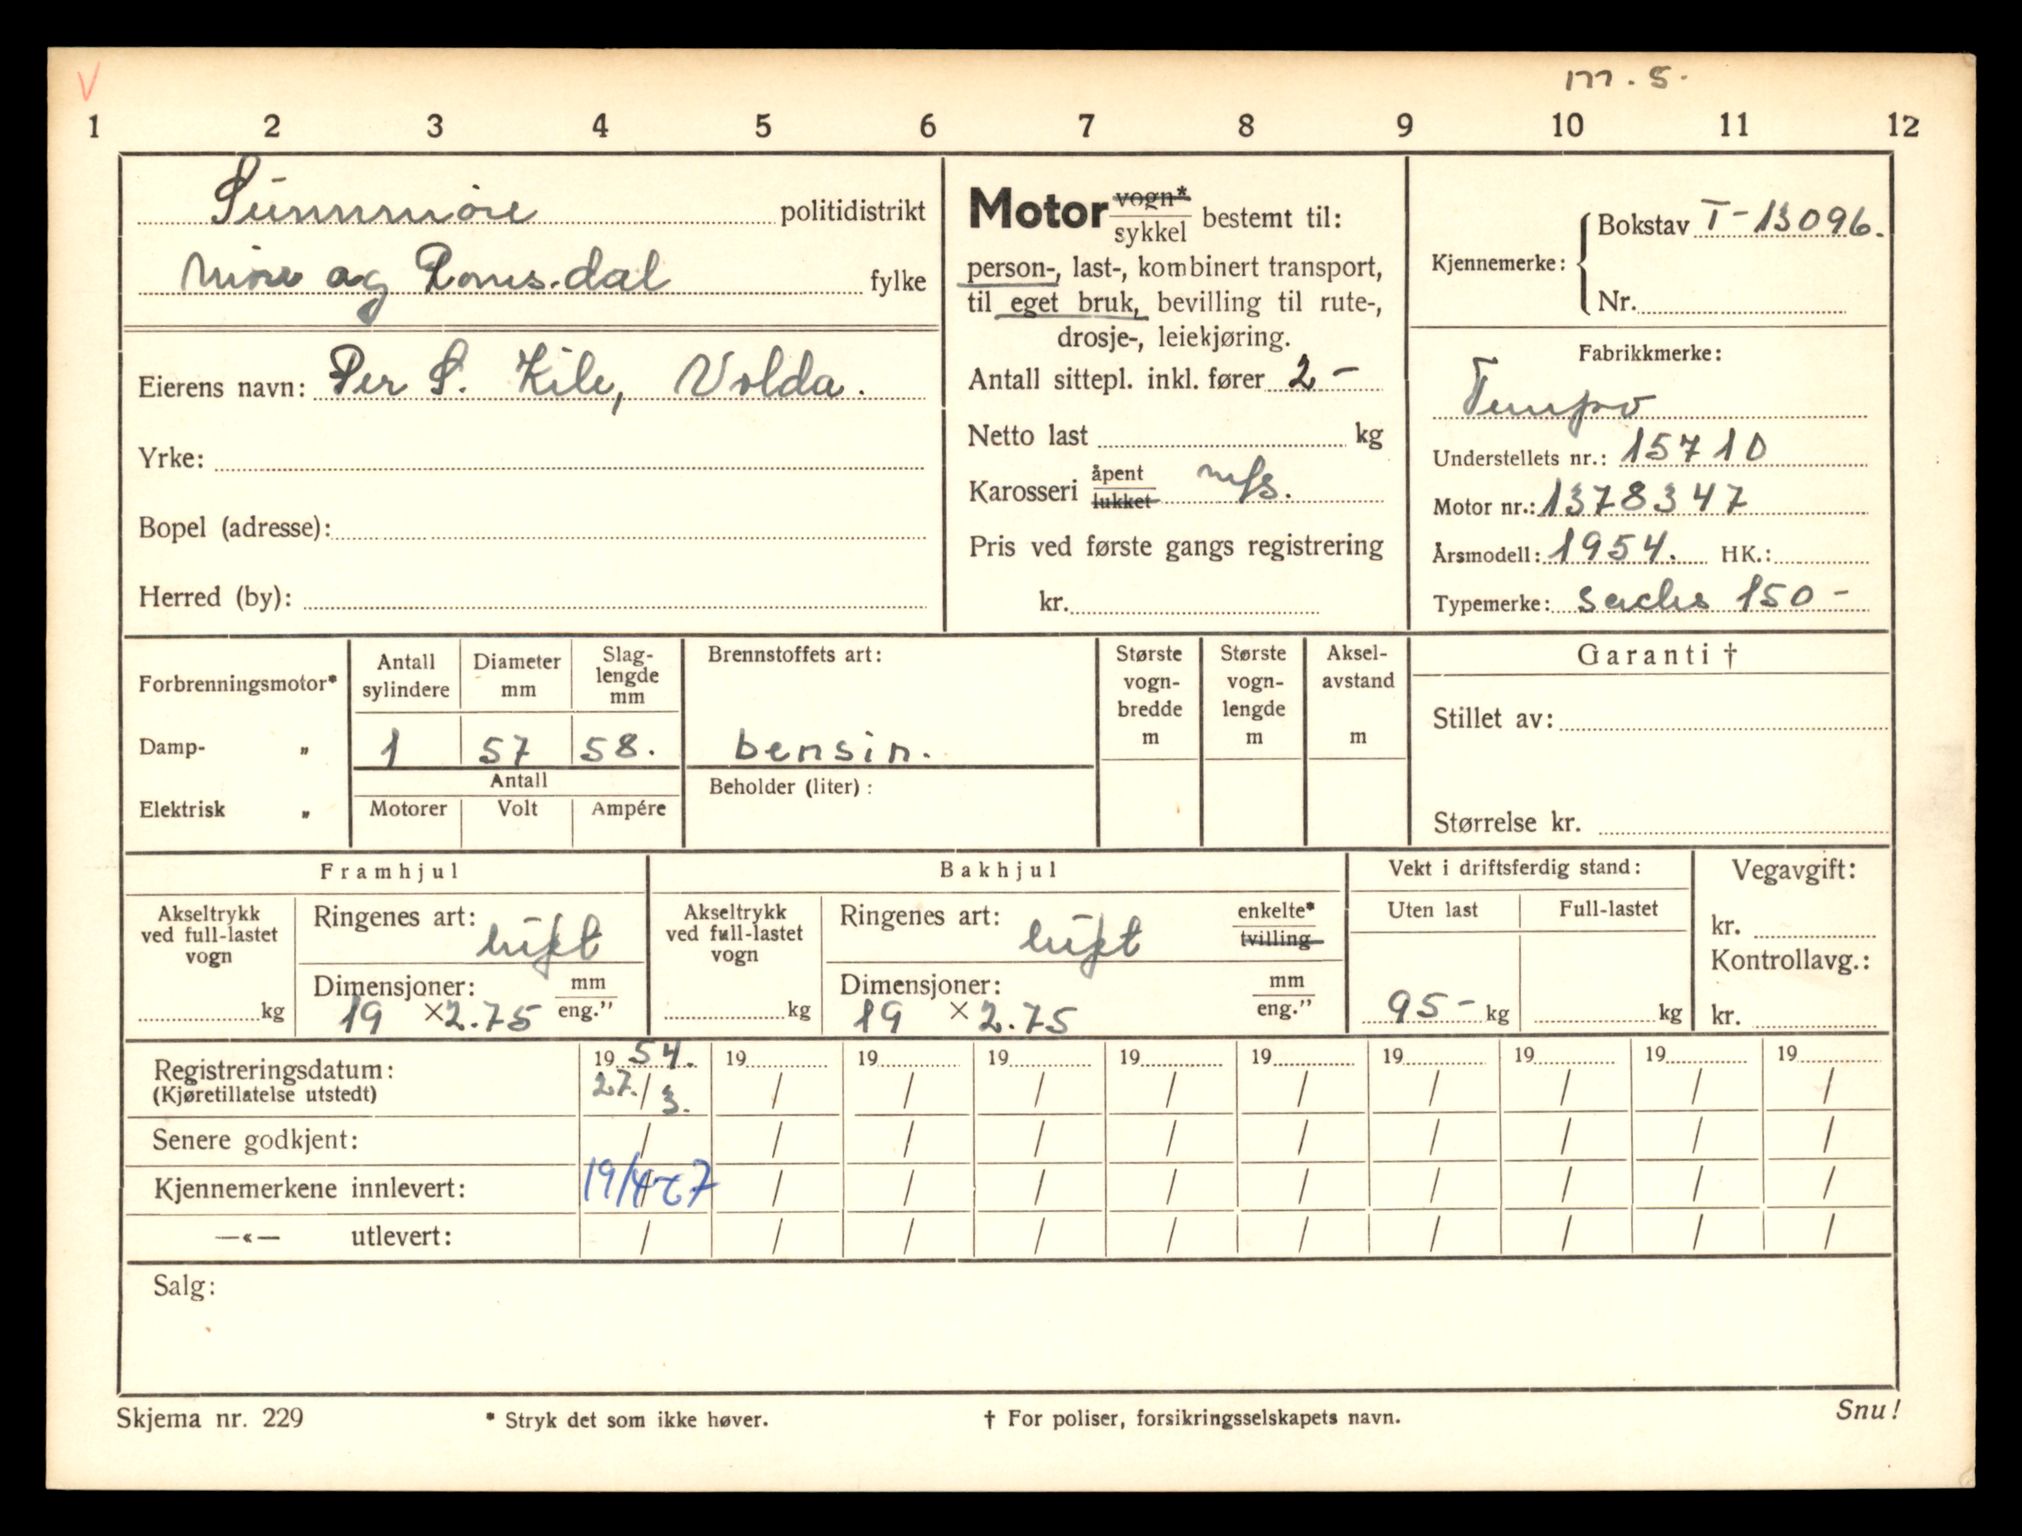 V
m.s.
1 2 3 4 5 6 7 8 9 10 11 12
Sunnmøre politidistrikt
Møre og Romsdal fylke
Eierens navn: Per S. Kile, Volda.
Yrke:
Bopel (adresse):
Herred (by):
Motor vogn* / sykkel bestemt til:
person-, last-, kombinert transport,
til eget bruk, bevilling til rute-,
drosje-, leiekjøring.
Antall sittepl. inkl. fører 2 -
Netto last kg
Karosseri åpent / lukket m/s.
Pris ved første gangs registrering
kr.
Kjennemerke: Bokstav T-13096.
Nr.
Fabrikkmerke:
Tempo
Understellets nr.: 15710
Motor nr.: 1378347
Årsmodell: 1954. HK.:
Typemerke: Sachs 150 -
Forbrenningsmotor*
Damp- „
Elektrisk „
Antall sylindere
Diameter mm
Slag-lengde mm
1 57 58.
Antall
Motorer Volt Ampére
Brennstoffets art:
bensin.
Beholder (liter):
Største vogn-bredde m
Største vogn-lengde m
Aksel-avstand m
Garanti †
Stillet av:
Størrelse kr.
Framhjul
Akseltrykk ved full-lastet vogn
kg
Ringenes art: luft
Dimensjoner: mm / eng."
19 × 2.75
Bakhjul
Akseltrykk ved full-lastet vogn
kg
Ringenes art: luft enkelte* / tvilling
Dimensjoner: mm / eng."
19 × 2.75
Vekt i driftsferdig stand:
Uten last Full-lastet
95 - kg kg
Vegavgift:
kr.
Kontrollavg.:
kr.
Registreringsdatum: 19 54. 19 19 19 19 19 19 19 19 19
(Kjøretillatelse utstedt) 27./3. / / / / / / / / /
Senere godkjent: / / / / / / / / / /
Kjennemerkene innlevert: 19/4-67 / / / / / / / / /
—«— utlevert: / / / / / / / / / /
Salg:
Skjema nr. 229
* Stryk det som ikke høver.
† For poliser, forsikringsselskapets navn.
Snu!